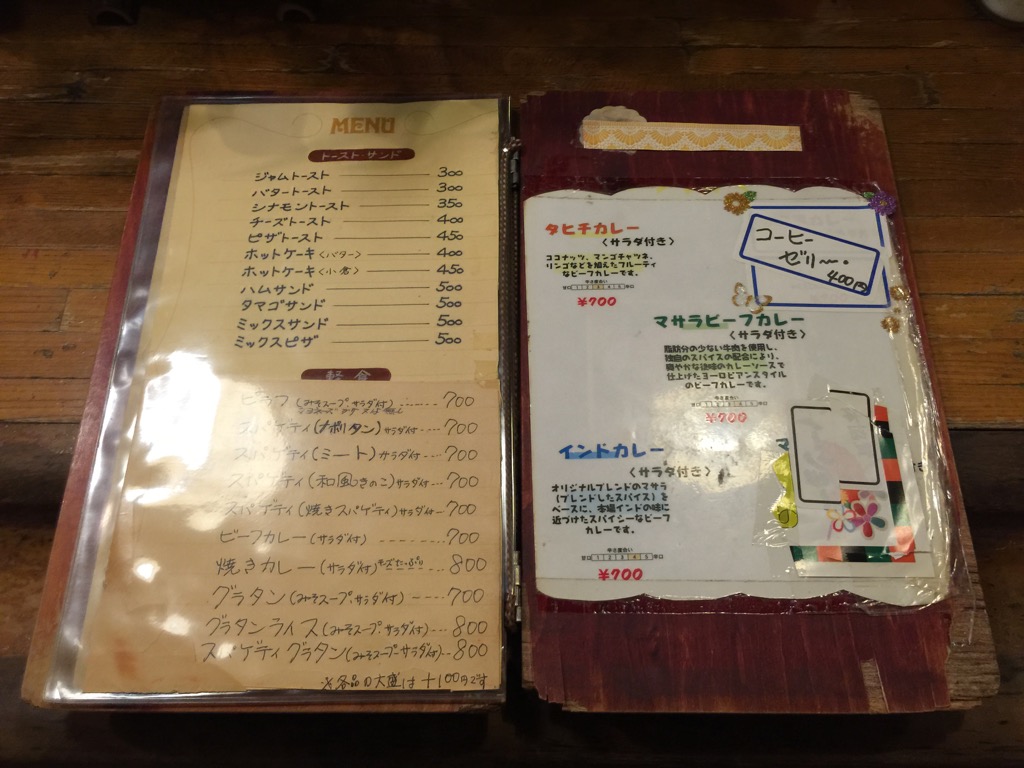 MENU
トースト・サンド
ジャムトースト 300
バタートースト 300
シナモントースト 350
チーズトースト 400
ピザトースト 450
ホットケーキ〈バター〉 400
ホットケーキ〈小倉〉 450
ハムサンド 500
タマゴサンド 500
ミックスサンド 500
ミックスピザ 500
軽食
ピラフ(みそスープ・サラダ付) 700
スパゲティ(ナポリタン)サラダ付 700
スパゲティ(ミート)サラダ付 700
スパゲティ(和風きのこ)サラダ付 700
スパゲティ(焼きスパゲティ)サラダ付 700
ビーフカレー(サラダ付) 700
焼きカレー(サラダ付)チーズたっぷり 800
グラタン(みそスープ・サラダ付) 700
グラタンライス(みそスープ・サラダ付) 800
スパゲティグラタン(みそスープ・サラダ付) 800
※各品の大盛は+100円です
タヒチカレー
〈サラダ付き〉
ココナッツ、マンゴチャツネ、
リンゴなどを加えたフルーティ
なビーフカレーです。
辛さ度合い
甘口 1 2 3 4 5 辛口
¥700
コーヒー
ゼリー・
400円
マサラビーフカレー
〈サラダ付き〉
脂肪分の少ない牛肉を使用し、
独自のスパイスの配合により、
爽やかな後味のカレーソースで
仕上げたヨーロピアンスタイル
のビーフカレーです。
辛さ度合い
甘口 1 2 3 4 5 辛口
¥700
インドカレー
〈サラダ付き〉
オリジナルブレンドのマサラ
(ブレンドしたスパイス)を
ベースに、本場インドの味に
近づけたスパイシーなビーフ
カレーです。
辛さ度合い
甘口 1 2 3 4 5 辛口
¥700
マ